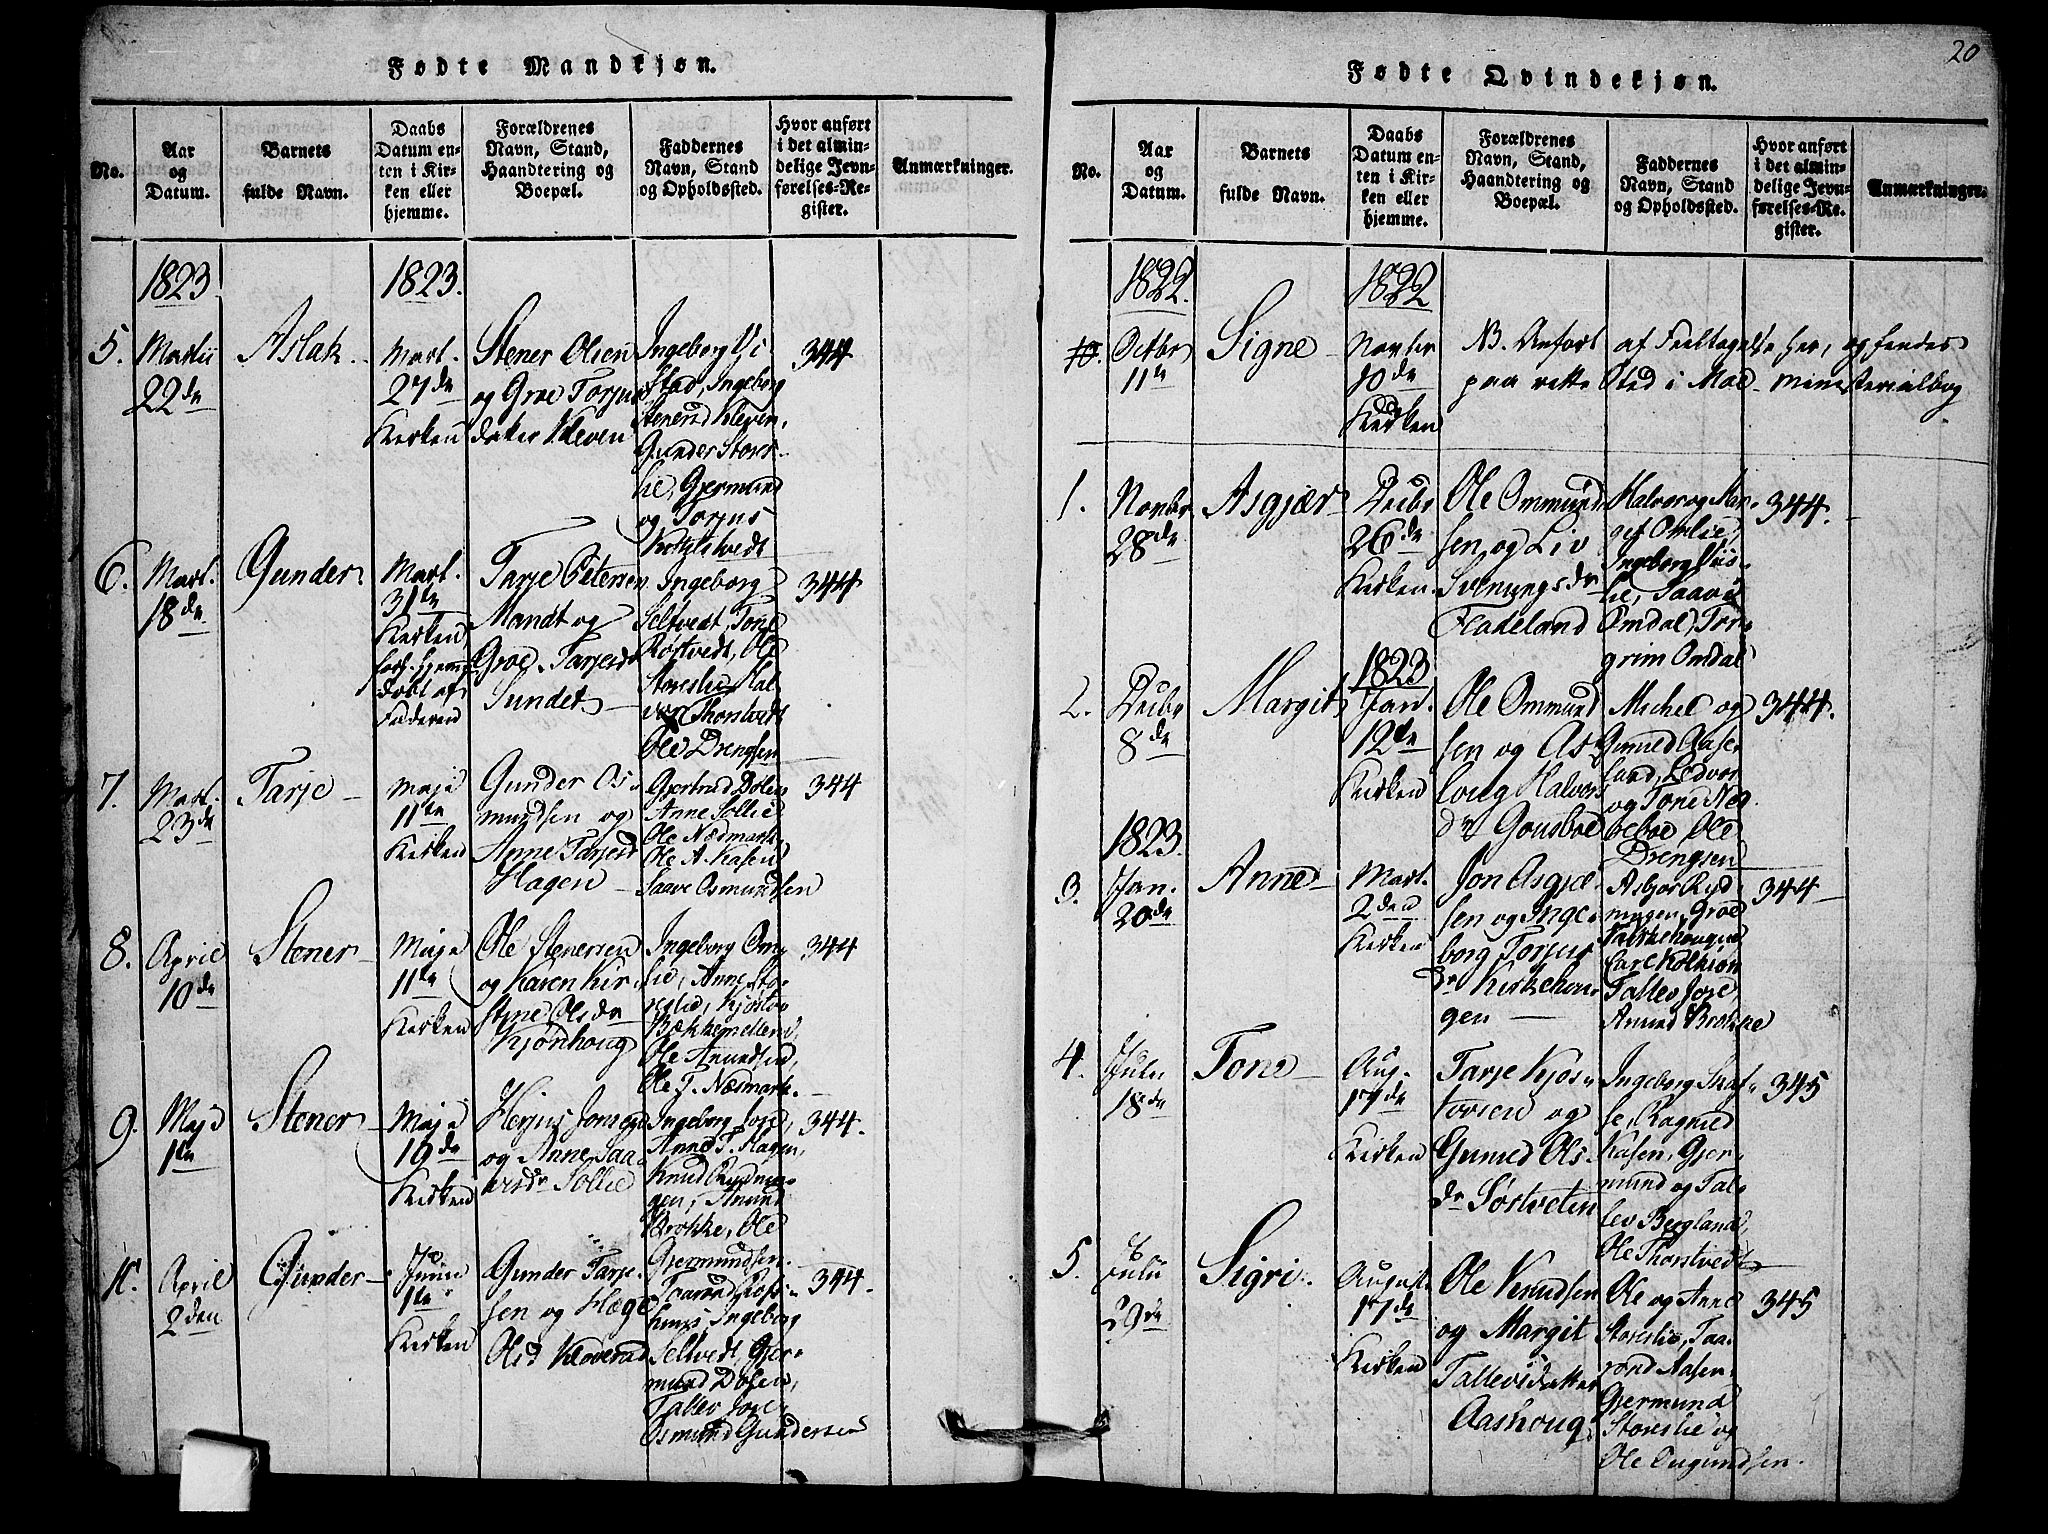 Fødte Mandkjøn.
No.
Aar
og
Datum.
Barnets
fulde Navn.
Daabs
Datum en-
ten i Kir-
ken eller
hjemme.
Forældrenes
Navn, Stand,
Haandtering og
Boepæl.
Faddernes
Navn, Stand
og Opholdssted.
Hvor anført
i det almin-
delige Jevn-
førelses-Re-
gister.
Anmærkninger.
1823
1823.
5.
Martii
22de
Aslak
Mart.
27de
Kirken
Stener Olsen
og Groe Torjus
datter Kleven
Ingeborg
stad, Ingeborg
Stenersd Kleven,
Gunder Stors-
lie, Gjermund
og Torjus
344
6.
Mart.
18de
Gunder
Mart.
31te
Kirken
hjemme
døbt af
Faderen
Tarje Petersen
Mandt og
Groe Tarjesdr
Sundet
Ingeborg
Seltvedt, Tone
Røstvedt, Ole
Storeslie, Hal-
vor Thorstvedt
Ole Drengsen
344
7.
Mart.
23de
Tarje
Maje
11te
Kirken
Gunder Os-
mundsen og
Anne Tarjesd
Hagen
Gjertrud Dolen
Anne Sollie
Ole Næsmark
Ole A. Kasen
Saave Osmundsen
344
8.
April
10de
Stener
Maje
11te
Kirken
Ole Stenersen
og Karen Kir-
stine Olsdr
Kjønhoug
Ingeborg Om-
lie, Anne Sto-
reslie, Kjøstov
Bækhemellem,
Ole Amundsen,
Ole T. Næsmark
344
9.
Maje
1te
Stener
Maje
19de
Kirken
Herjus Jonsen
og Anne Saa-
vesdr Sollie
Ingeborg Jore,
Anne T. Hagen,
Knud Rydmo-
gen, Anund
Brokke, Ole
Gjermundsen
344.
10.
April
2den
Gunder
Junii
1te
Kirken
Gunder Tarje-
sen og Hæge
Olsd Kloverud
Taarond
Ingeborg
Seltvedt, Gjer-
mund Dolen,
Tallev Jore
Osmund Gundersen
344.
20
Fødte Qvindekjøn.
No.
Aar
og
Datum.
Barnets
fulde Navn.
Daabs
Datum en-
ten i Kir-
ken eller
hjemme.
Forældrenes
Navn, Stand,
Haandtering og
Boepæl.
Faddernes
Navn, Stand
og Opholdssted.
Hvor anført
i det almin-
delige Jevn-
førelses-Re-
gister.
Anmærkninger.
1822.
1822
10.
Octbr
11te
Signe
Novbr
10de
Kirken
NB. Anført af Feiltagelse her, og findes
paa rette Sted i Moe Ministerialbog
1.
Novbr
28de
Asgjær
Decbr
26de
Kirken.
Ole Ommund-
sen og Liv
Svenungsdr
Fladeland
Halvor og Mar-
git Omlie,
Ingeborg Viis-
lie, Saave
Omdal, Tor-
grim Omdal
344.
2.
Decbr
8de
Margit
1823
Jan.
12te
Kirken
Ole Ommund
sen og As-
loug Halvors
dr Gonsboe
Michel og
Gunild Aase-
land, Ledvor
og Tone Ned-
reboe Ole
Drengsen
344.
1823.
3.
Jan.
20de
Anne
Mart.
2den
Kirken
Jon Asgjæ-
sen og Inge-
borg Torjus
dr Kirkehou-
gen
Asbjør Ryd-
mogen, Groe
Kirkehougen
Tarje Kolkjon
Tallev Jore,
Anund Brokke
344
4.
Juli
18de
Tone
Aug.
17de
Kirken
Tarje Kjøs-
tovsen og
Guned Ols-
dr Søstveten
Ingeborg Skaf-
se, Ragnild
Kasen, Gjer-
mund og Tal-
lev Bergland,
Ole Thorstvedt
345
5.
Juli
29de
Sigri
August
17de
Kirken
Ole Knudsen
og Margit
Tallevsdatter
Aashoug
Ole og Anne
Storeslie, Taa-
rond Aasen,
Gjermund
Storeslie og
Ole Ougundsen.
345